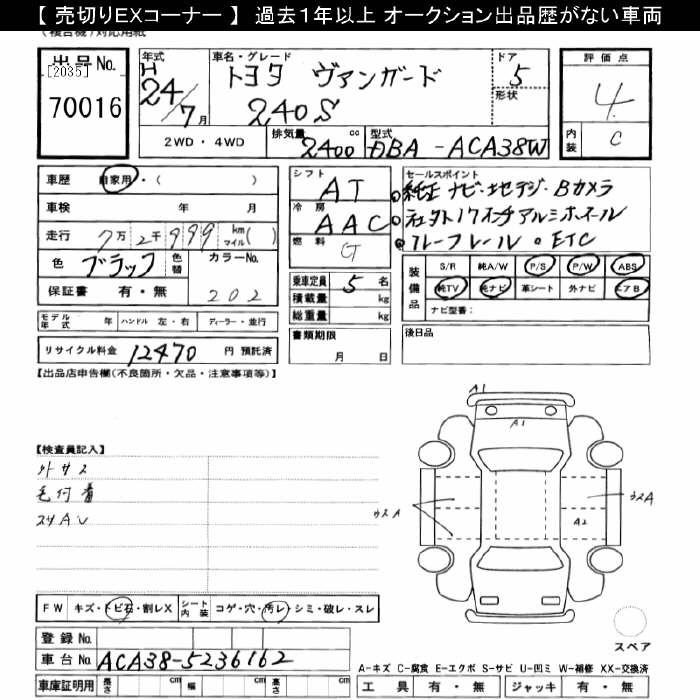 【 売切りEXコーナー 】 過去1年以上 オークション出品歴がない車両
(複合機)対応用紙
出品No.
[2035]
70016
年式
H
24/7月
車名・グレード
トヨタ ヴァンガード
240S
ドア
5
形状
評価点
4
内装
C
2WD・4WD
排気量
2400 cc
型式
DBA-ACA38W
車歴 自家用・( )
車検 年 月
走行 7万2千999 km マイル( )
色 ブラック
色替
カラーNo.
202
保証書 有・無
シフト
AT
冷房
AAC
燃料
G
乗車定員 5 名
積載量 kg
総重量 kg
書類期限
月 日
セールスポイント
純正ナビ・地デジ・Bカメラ
社外17インチアルミホイール
ルーフレール。ETC
装備品
S/R 純A/W P/S P/W ABS
純TV 純ナビ 革シート 外ナビ エアB
ナビ型番:
後日品
モデル年式 年 ハンドル 左・右 ディーラー・並行
リサイクル料金 12470 円 預託済
【出品店申告欄(不良箇所・欠品・注意事項等)】
【検査員記入】
外サス
毛付着
スリAU
A1
A1
ウスA
ウスA
A2
スペア
FW キズ・トビ石・割レX シート内装 コゲ・穴・汚レ・シミ・破レ・スレ
登録No.
車台No. ACA38-5236162
車庫証明用 長さ cm 幅 cm 高さ cm
A-キズ C-腐食 E-エクボ S-サビ U-凹ミ W-補修 XX-交換済
工具 有・無 ジャッキ 有・無